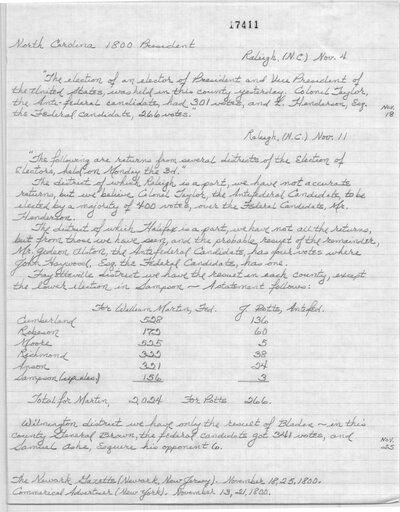 17411
North Carolina 1800 President
Raleigh, (N.C.) Nov. 4
"The election of an elector of President and Vice President of
the United States, was held in this county yesterday. Colonel Taylor,
the Anti-federal candidate, had 301 votes, and L. Henderson, Esq.
the Federal candidate, 266 votes.
Nov.
18
Raleigh, (N.C.) Nov. 11
"The following are returns from several districts of the Election of
Electors, held on Monday the 3d.
The district of which Raleigh is a part, we have not accurate
returns, but we believe Colonel Taylor, the Antifederal Candidate, to be
elected by a majority of 400 votes, over the Federal Candidate, Mr.
Henderson.
The district of which Halifax is a part, we have not all the returns,
but from those we have seen, and the probable result of the remainder,
Mr. Gideon Alston, the Antifederal Candidate, has four votes where
John Haywood, Esq. the Federal Candidate, has one.
Fayetteville district we have the result in each county, except
the lower election in Sampson — A statement follows:
For William Martin, Fed. J. Potts, Antifed.
Cumberland 528 136
Robeson 172 60
Moore 525 5
Richmond 322 38
Anson 321 24
Sampson (upp. elec.) 156 3
Total for Martin, 2,024 For Potts 266.
Wilmington district we have only the result of Bladen — in this
county General Brown, the federal candidate got 341 votes, and
Samuel Ashe, Esquire his opponent 6.
Nov.
25
The Newark Gazette (Newark, New Jersey). November 18, 25, 1800.
Commerical Advertiser (New York). November 13, 21, 1800.